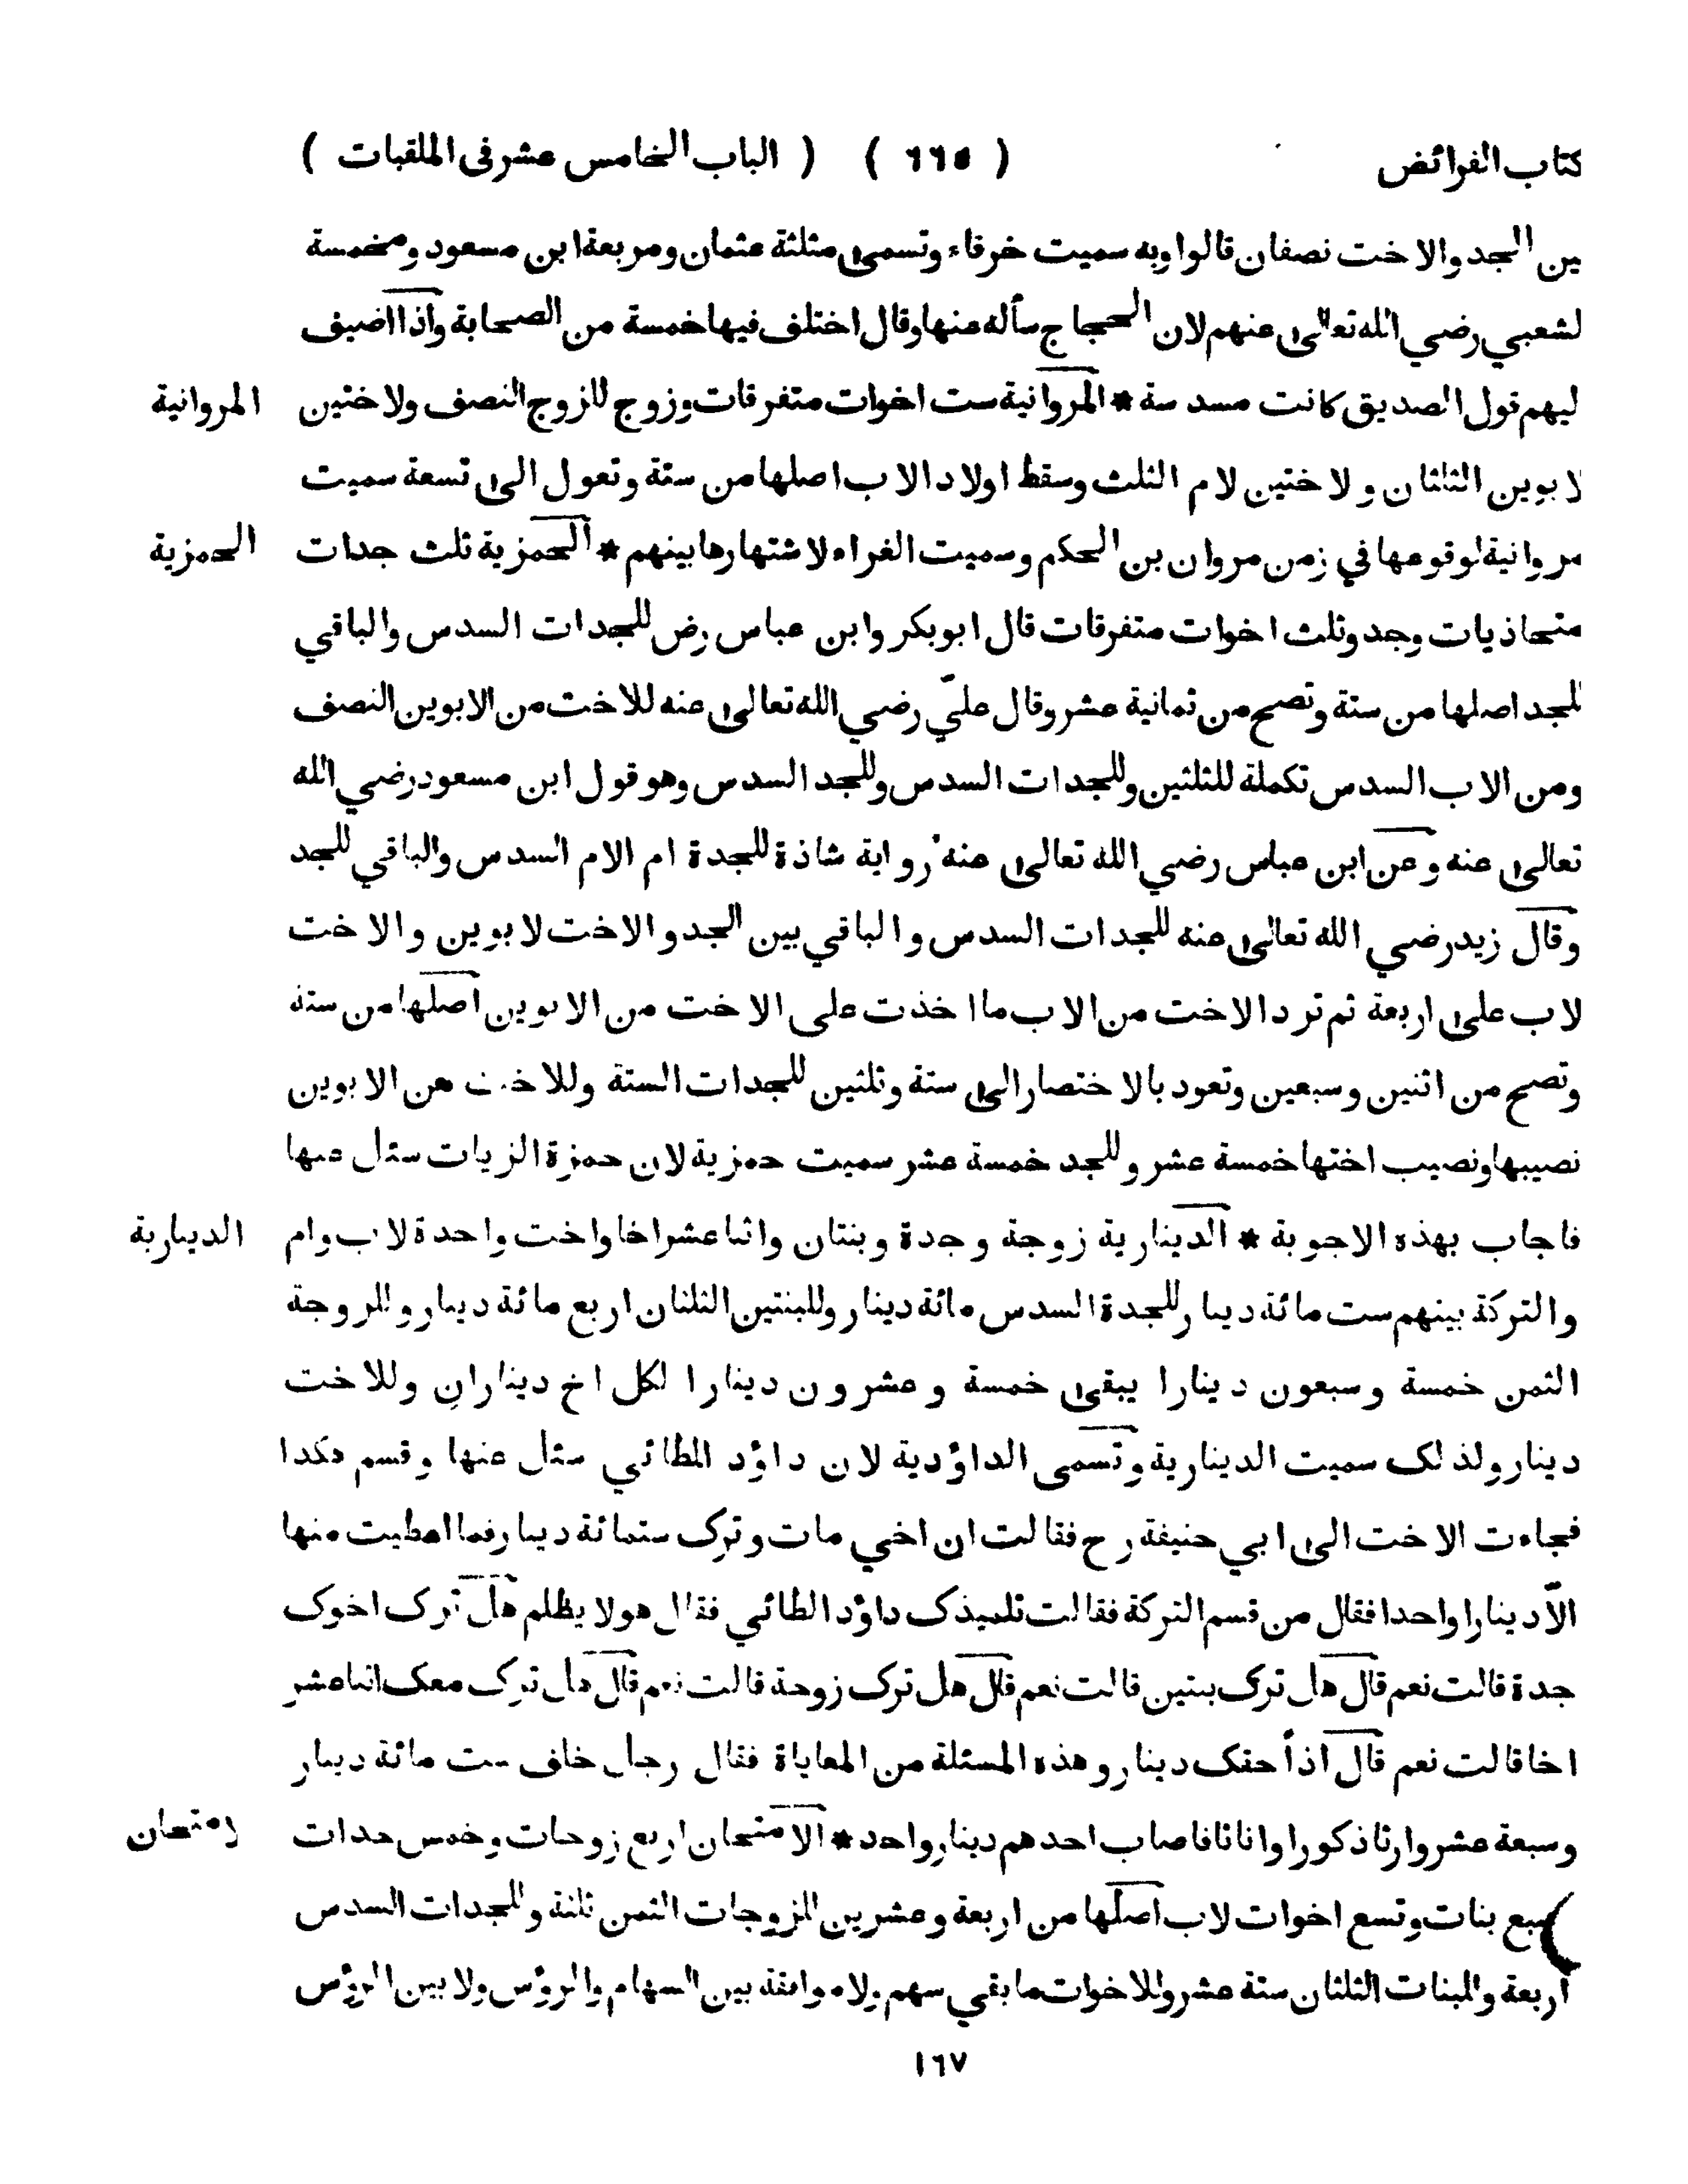 كتاب الفرائض ( ٦٦٥ ) ( الباب الخامس عشر في الملقبات )
بين الجد والاخت نصفان قالوا وبه سميت خرقاء وتسمى مثلثة عثمان ومربعة ابن مسعود ومخمسة
لشعبي رضي الله تعالى عنهم لان الحجاج سأله عنها وقال اختلف فيها خمسة من الصحابة واذا اضيف
ليهم قول الصديق كانت مسدسة * المروانية ست اخوات متفرقات وزوج للزوج النصف ولاختين
المروانية
لابوين الثلثان ولاختين لام الثلث وسقط اولاد الاب اصلها من ستة وتعول الى تسعة سميت
مروانية لوقوعها في زمن مروان بن الحكم وسميت الغراء لاشتهارها بينهم * الحمزية ثلث جدات
الحمزية
متحاذيات وجد وثلث اخوات متفرقات قال ابوبكر وابن عباس رض للجدات السدس والباقي
للجد اصلها من ستة وتصح من ثمانية عشر وقال عليّ رضي الله تعالى عنه للاخت من الابوين النصف
ومن الاب السدس تكملة للثلثين وللجدات السدس وللجد السدس وهو قول ابن مسعود رضي الله
تعالى عنه وعن ابن عباس رضي الله تعالى عنه رواية شاذة للجدة ام الام السدس والباقي للجد
وقال زيد رضي الله تعالى عنه للجدات السدس والباقي بين الجد والاخت لابوين والاخت
لاب على اربعة ثم ترد الاخت من الاب ما اخذت على الاخت من الابوين اصلها من ستة
وتصح من اثنين وسبعين وتعود بالاختصار الى ستة وثلثين للجدات الستة وللاخت من الابوين
نصيبها ونصيب اختها خمسة عشر وللجد خمسة عشر سميت حمزية لان حمزة الزيات سئل عنها
فاجاب بهذه الاجوبة * الدينارية زوجة وجدة وبنتان واثنا عشر اخا واخت واحدة لاب وام
الدينارية
والتركة بينهم ست مائة دينار للجدة السدس مائة دينار وللبنتين الثلثان اربع مائة دينار وللزوجة
الثمن خمسة وسبعون دينارا يبقى خمسة وعشرون دينارا لكل اخ ديناران وللاخت
دينار ولذلك سميت الدينارية وتسمى الداؤدية لان داؤد الطائي سئل عنها وقسم هكذا
فجاءت الاخت الى ابي حنيفة رح فقالت ان اخي مات وترك ستمائة دينار فما اعطيت منها
الاّ دينارا واحدا فقال من قسم التركة فقالت تلميذك داؤد الطائي فقال هو لا يظلم هل ترك اخوك
جدة قالت نعم قال هل ترك بنتين قالت نعم قال هل ترك زوجة قالت نعم قال هل ترك معك اثنا عشر
اخا قالت نعم قال اذاً حقك دينار وهذه المسئلة من المعاياة فقال رجل خلف ست مائة دينار
وسبعة عشر وارثا ذكورا واناثا فاصاب احدهم دينار واحد * الامتحان اربع زوجات وخمس جدات
لامتحان
سبع بنات وتسع اخوات لاب اصلها من اربعة وعشرين للزوجات الثمن ثلثة وللجدات السدس
اربعة وللبنات الثلثان ستة عشر وللاخوات ما بقي سهم ولا موافقة بين السهام والرؤس ولا بين الرؤس
١٦٧